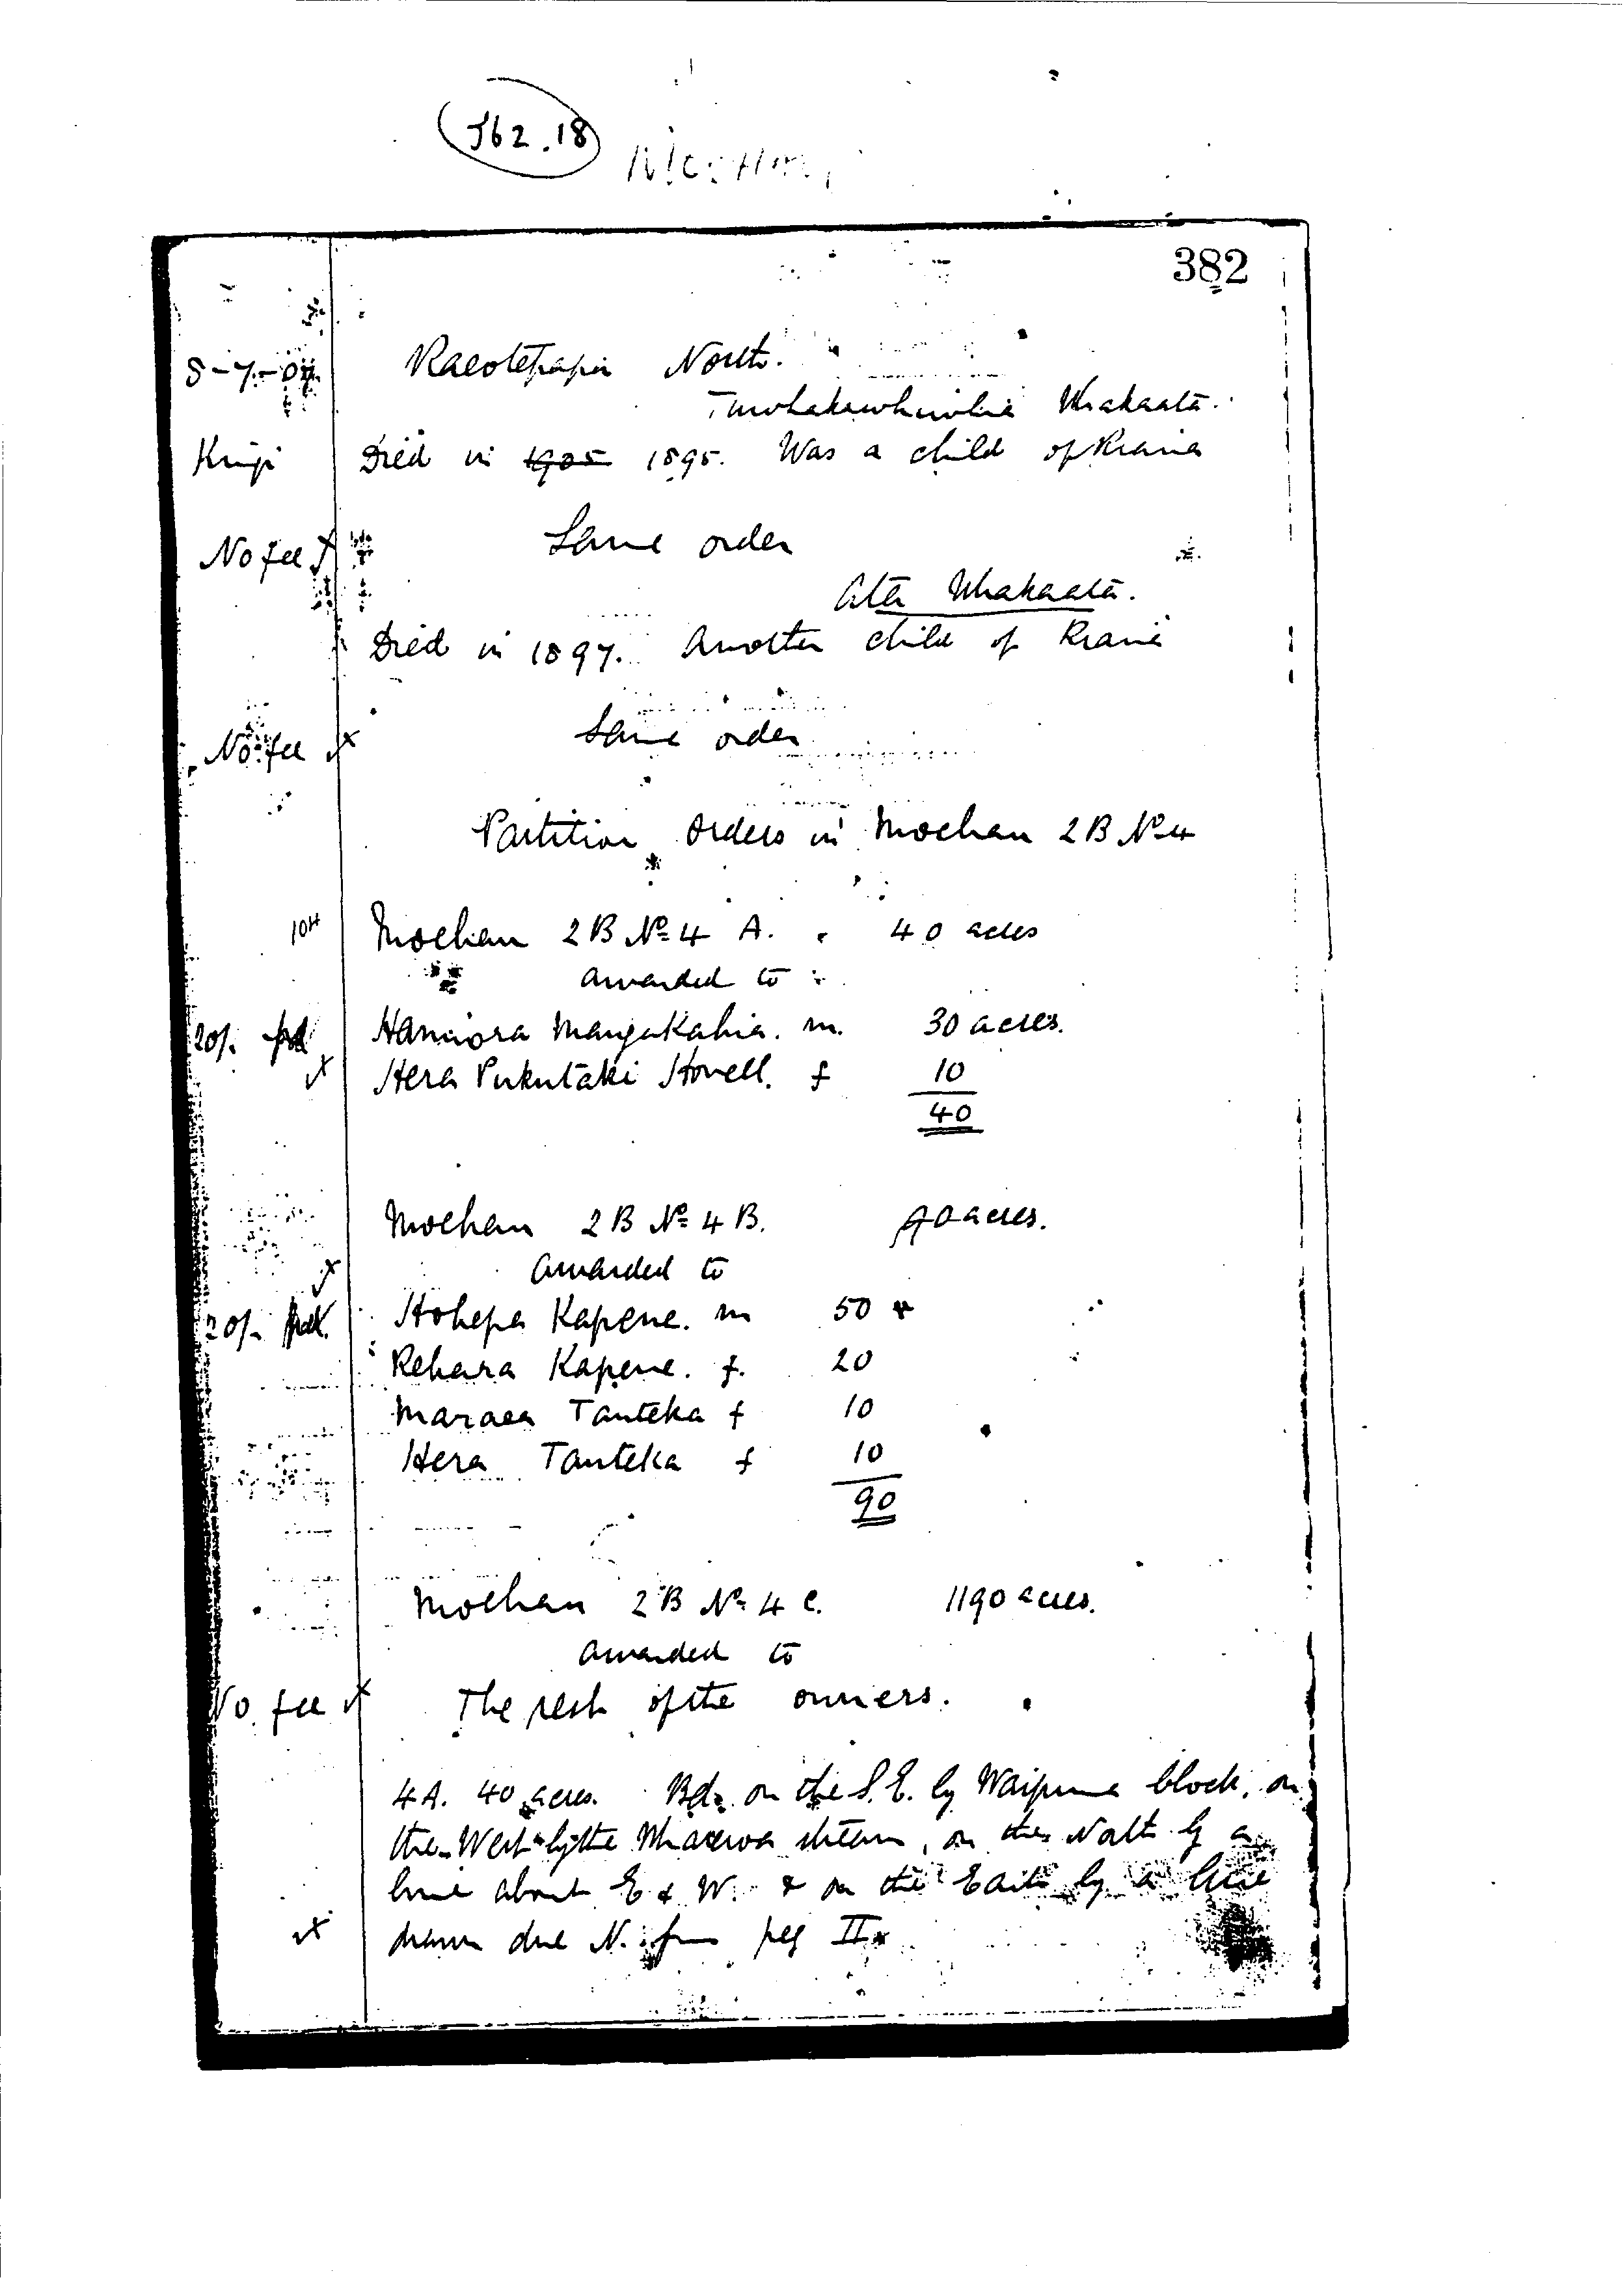 J62.18
382
5-7-04. Raeotepapa North.
Whakaata.
Kingi Died in 1905 1895. Was a child of Riaria
No fee Same order
Ata Whakaata.
Died in 1897. Another child of
No fee Same order
Partition Orders in Moehau 2B No 4
Moehau 2B No 4 A. 40 acres
awarded to
20/- pd Hamiora Mangakahia. m. 30 acres.
Hera Pukutaki Howell. f 10
40
Moehau 2B No 4 B. 90 acres.
awarded to
20/- pd. Hohepa Kapene. m 50
Rehara Kapene. f. 20
Maraea Tauteka f 10
Hera Tauteka f 10
90
Moehau 2B No 4 C. 1190 acres.
awarded to
No fee The rest of the owners.
4A. 40 acres. Bd. on the S.E. by block, on
the West by the stream, on the North by a
line about E & W. & on the East by a line
drawn due N. from peg II